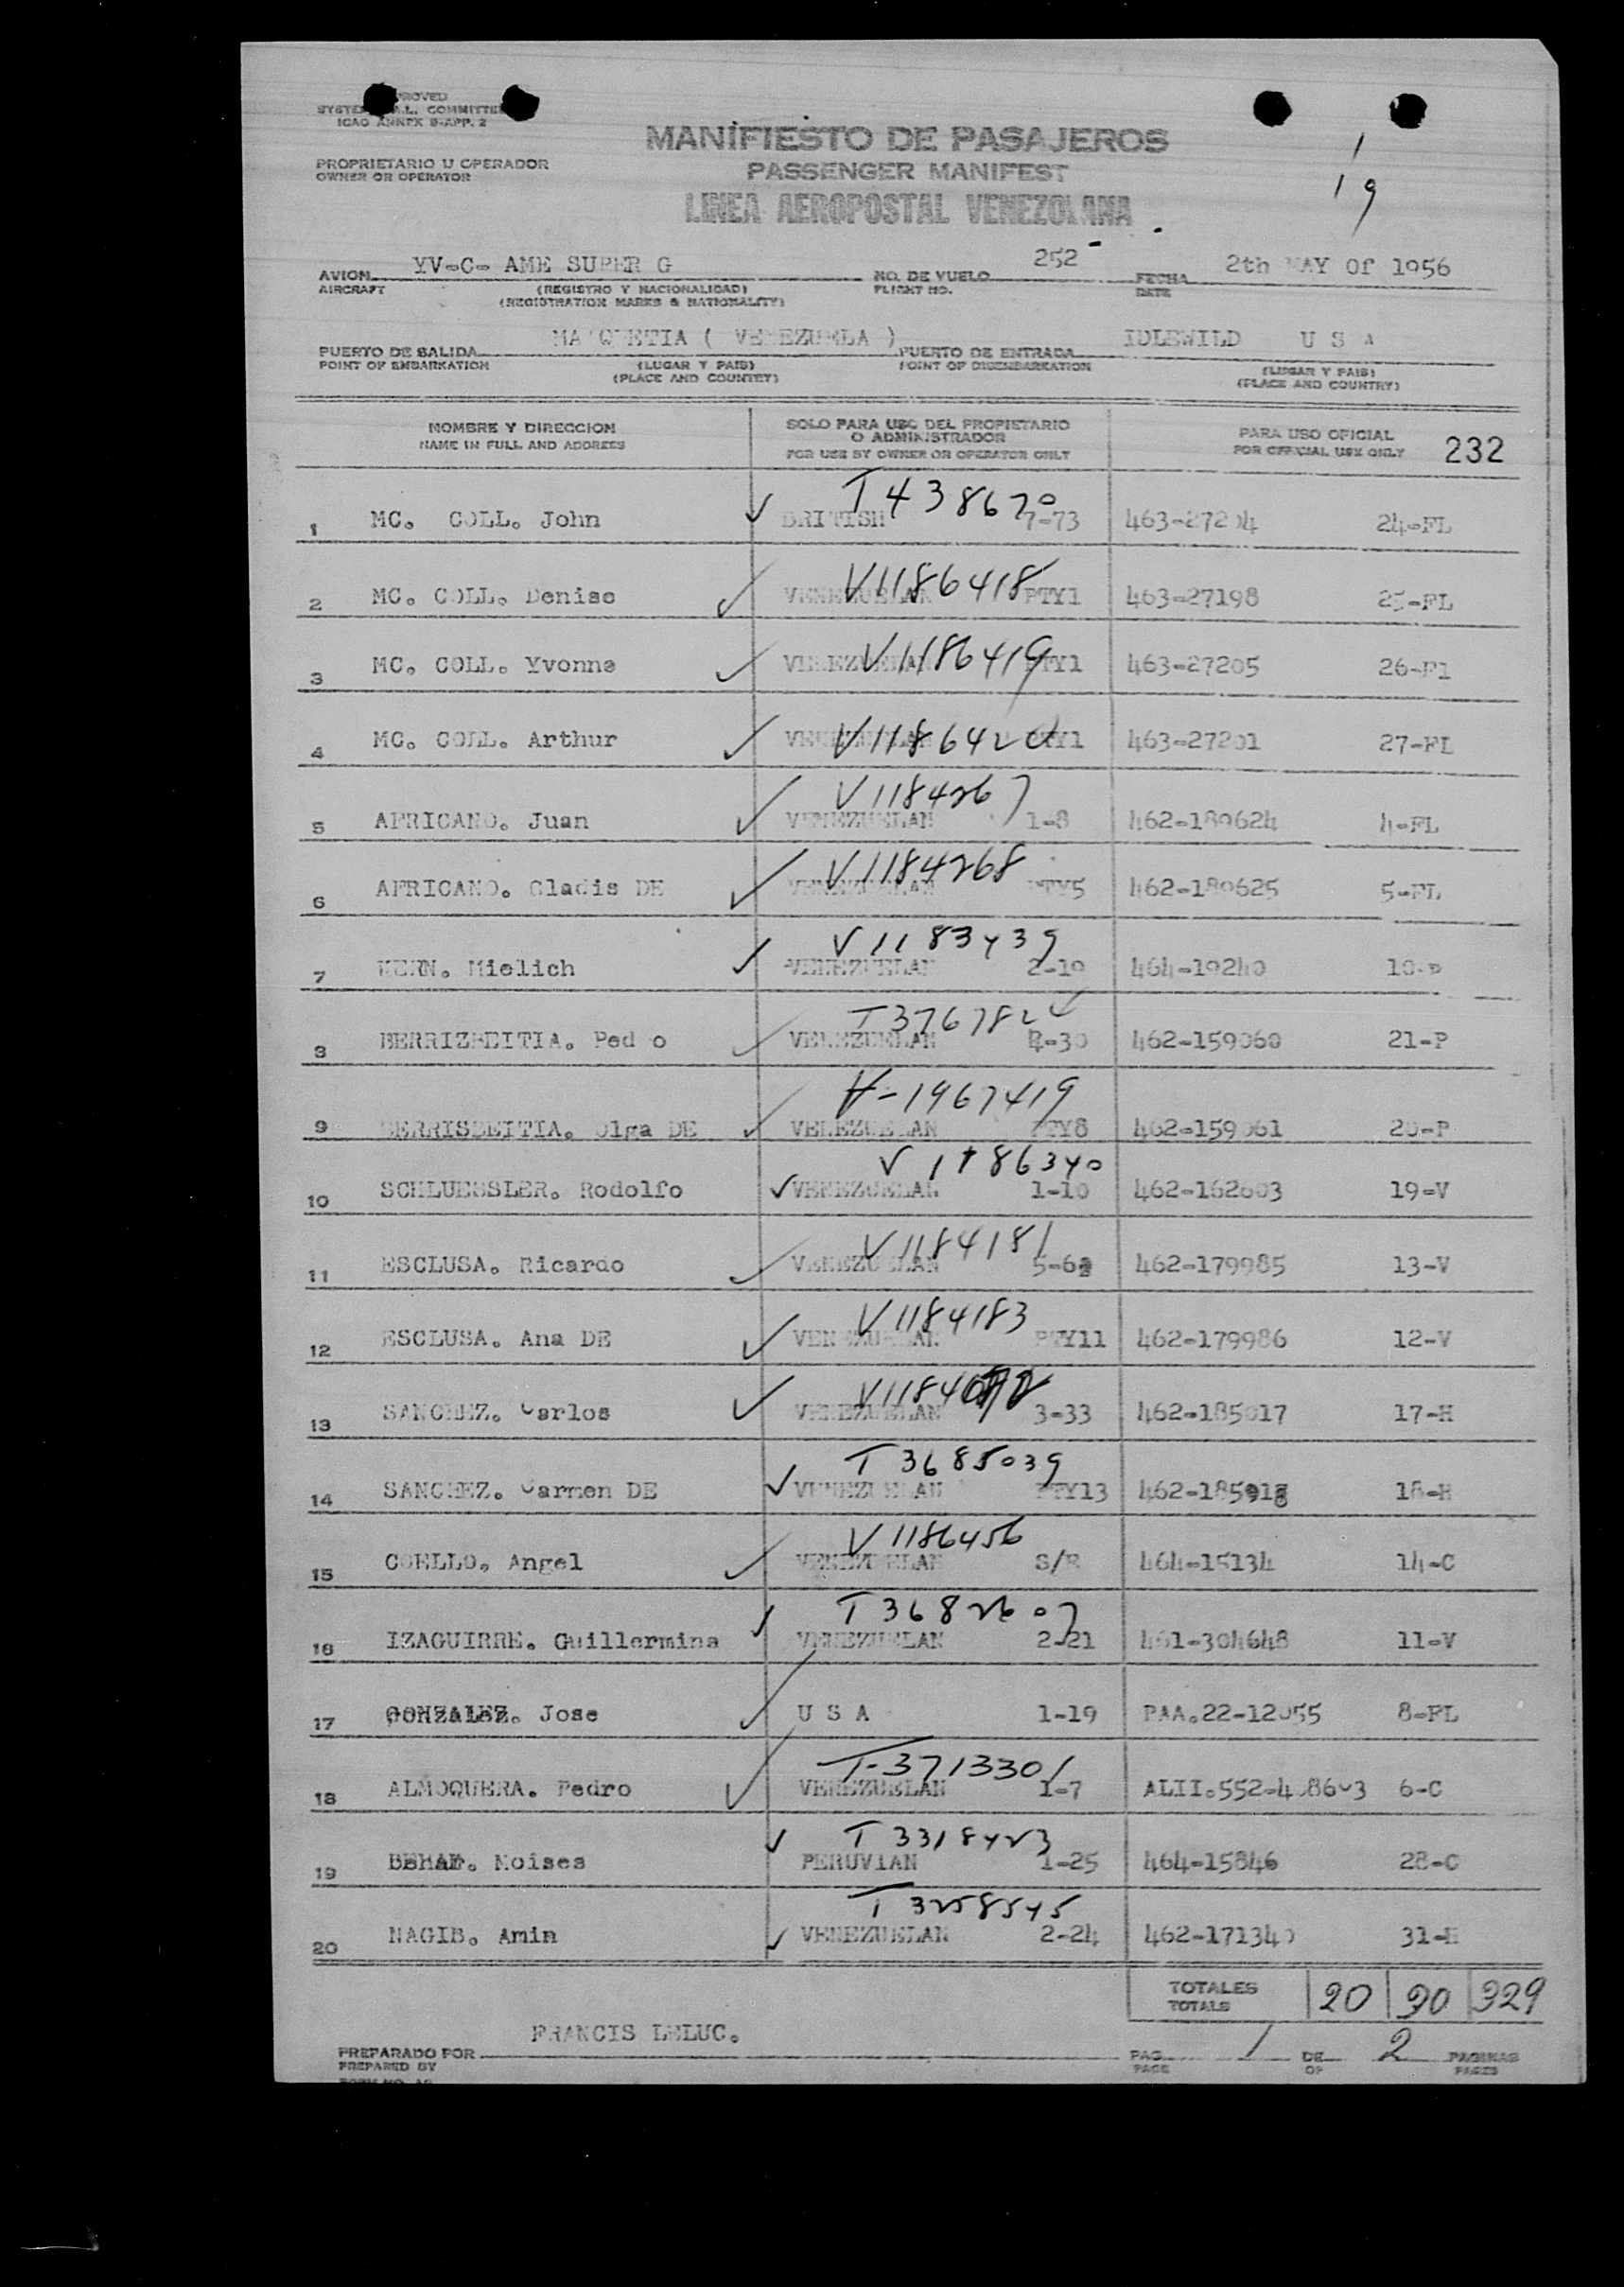 PROVED
COMMITTE
ICAO ANNEX 9-APP. 2
MANIFIESTO DE PASAJEROS
PASSENGER MANIFEST
LINEA AEROPOSTAL VENEZOLANA
PROPRIETARIO U OPERADOR
OWNER OR OPERATOR
1
19
AVION YV-C- AME SUPER G NO. DE VUELO 252 FECHA 2th MAY Of 1956
AIRCRAFT (REGISTRO Y NACIONALIDAD) FLIGHT NO. DATE
(REGISTRATION MARKS & NATIONALITY)
PUERTO DE SALIDA ( VENEZUELA ) PUERTO DE ENTRADA IDLEWILD U S A
POINT OF EMBARKATION (LUGAR Y PAIS) POINT OF DISEMBARKATION (LUGAR Y PAIS)
(PLACE AND COUNTRY) (PLACE AND COUNTRY)
NOMBRE Y DIRECCION SOLO PARA USO DEL PROPIETARIO O ADMINISTRADOR PARA USO OFICIAL
NAME IN FULL AND ADDRESS FOR USE BY OWNER OR OPERATOR ONLY FOR OFFICIAL USE ONLY 232
T 438670
1 MC. COLL. John BRITISH 7-73 463-27204 24-FL
V1186418
2 MC. COLL. Denise VENEZUELAN PTY1 463-27198 25-FL
V1186419
3 MC. COLL. Yvonne VENEZUELAN PTY1 463-27205 26-Fl
4 MC. COLL. Arthur VENEZUELAN PTY1 463-27201 27-FL
V1184267
5 AFRICANO. Juan VENEZUELAN 1-8 462-189624 4-FL
V1184268
6 AFRICANO. Gladis DE VENEZUELAN PTY5 462-189625 5-FL
V1183439
7 Mielich VENEZUELAN 2-19 464-19240
8 BERRIZBEITIA. Ped o VENEZUELAN 462-159060 21-P
V-1967419
9 BERRISBEITIA. Olga DE VENEZUELAN PTY8 462-159061 20-P
V 1186340
10 SCHLUESSLER. Rodolfo VENEZUELAN 1-10 462-162603 19-V
V1184181
11 ESCLUSA. Ricardo VENEZUELAN 462-179985 13-V
V1184183
12 ESCLUSA. Ana DE VENEZUELAN PTY11 462-179986 12-V
13 SANCHEZ. Carlos VENEZUELAN 3-33 462-185017 17-H
T 3685039
14 SANCHEZ. Carmen DE VENEZUELAN PTY13 18-H
V 1186456
15 COELLO. Angel VENEZUELAN S/R 464-15134 14-C
T 3682607
16 IZAGUIRRE. Guillermina VENEZUELAN 2-21 461-304648 11-V
17 GONZALEZ. Jose U S A 1-19 PAA.22-12055 8-FL
T-3713301
18 ALMOQUERA. Pedro VENEZUELAN 1-7 6-C
T 3318423
19 BEHAR. Moises PERUVIAN 1-25 464-15846 28-C
T 3258545
20 NAGIB. Amin VENEZUELAN 2-24 462-171340 31-H
TOTALES 20 90 329
TOTALS
FRANCIS LELUC.
PREPARADO POR PAG. 1 DE 2 PAGINAS
PREPARED BY PAGE OF PAGES